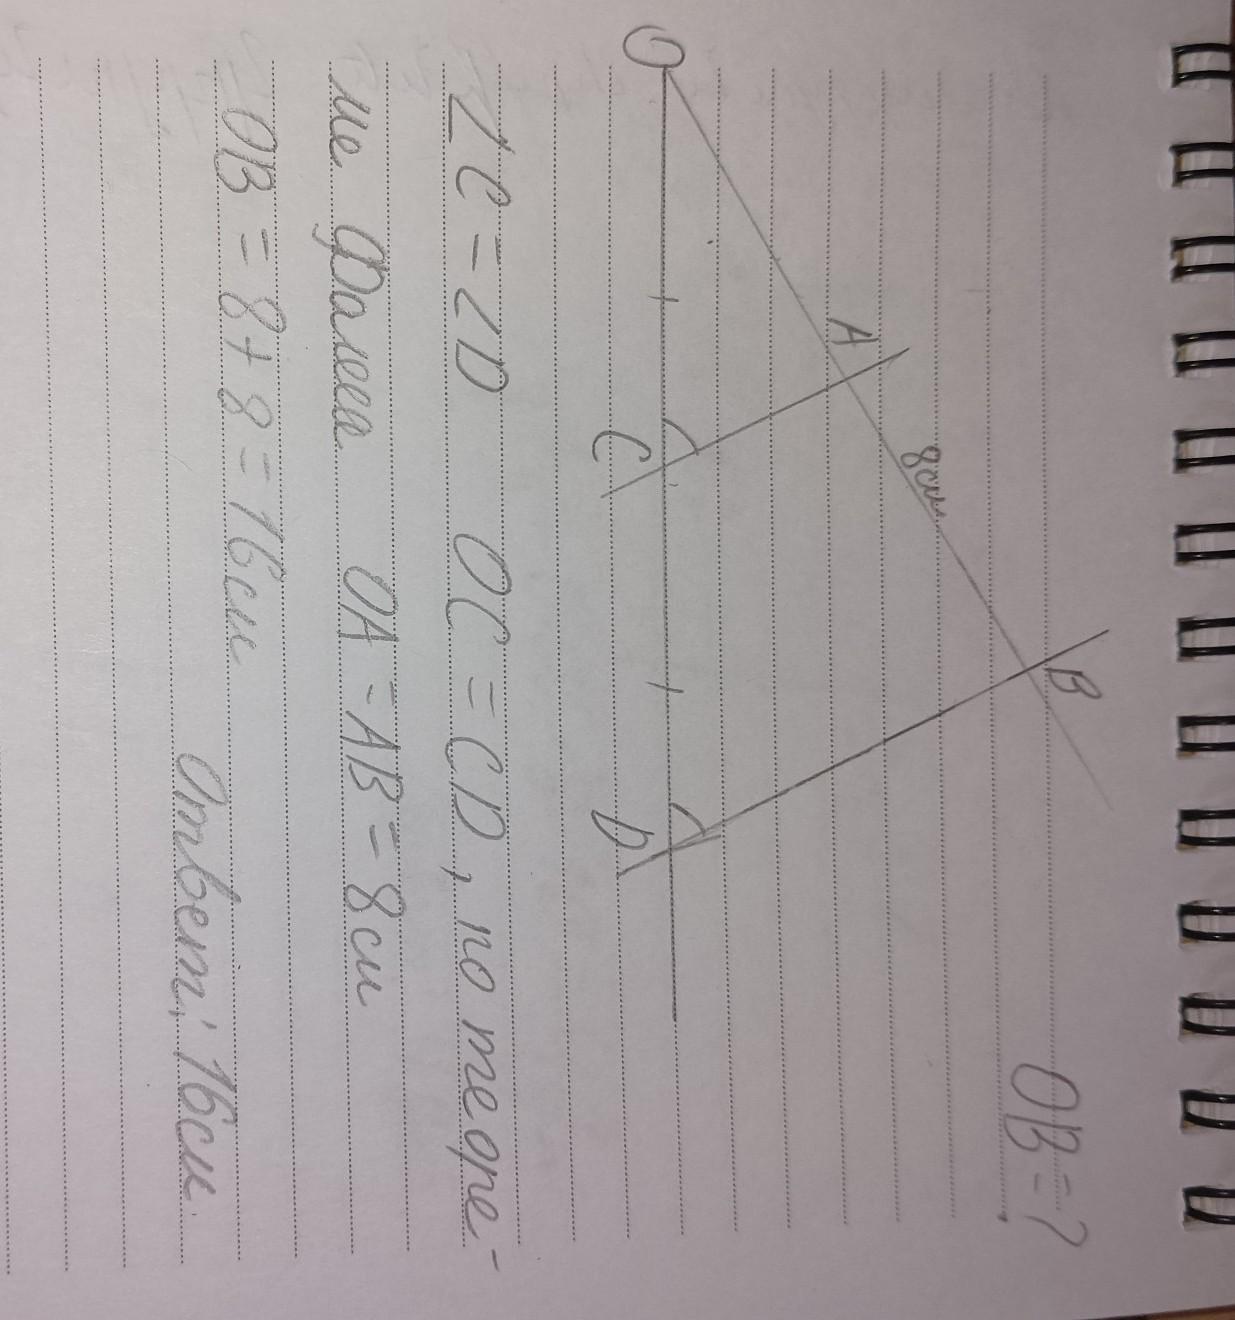 OB = ?
B
8см
A
O
C
D
∠C = ∠D OC = CD, по теоре-
ме Фалеса OA = AB = 8см
OB = 8 + 8 = 16см
Ответ: 16см.